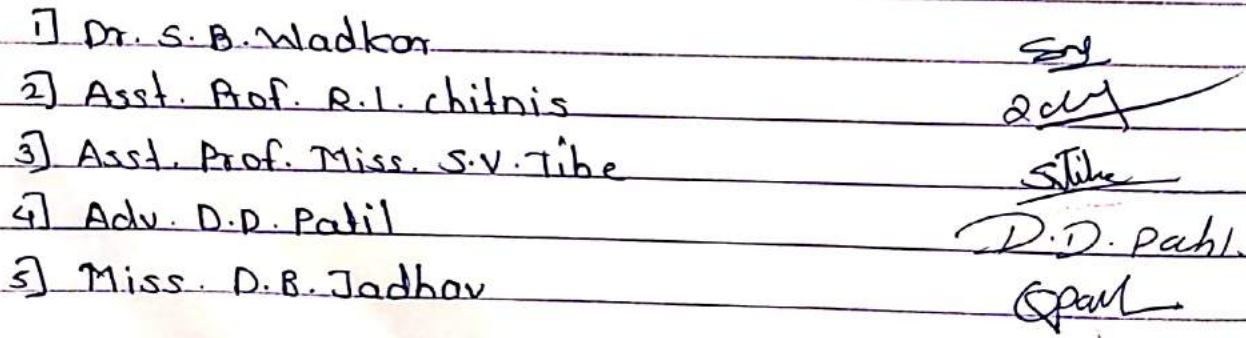 1] Dr. S. B. Wadkar
2] Asst. Prof. R. I. chitnis
3] Asst. Prof. Miss. S.V. Tibe STibe
4] Adv. D.D. Patil D.D. Patil.
5] Miss. D.B. Jadhav